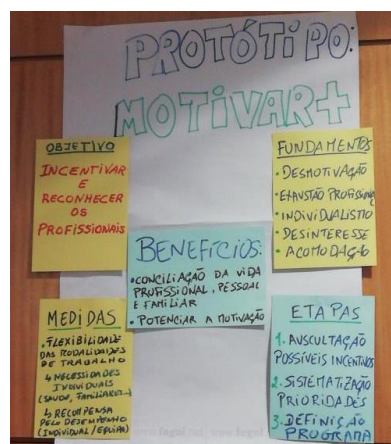 PROTÓTIPO:
MOTIVAR+
OBJETIVO
INCENTIVAR
E
RECONHECER
OS
PROFISSIONAIS
FUNDAMENTOS
• DESMOTIVAÇÃO
• EXAUSTÃO PROFISSIONAL
• INDIVIDUALISMO
• DESINTERESSE
• ACOMODAÇÃO
BENEFÍCIOS:
• CONCILIAÇÃO DA VIDA
PROFISSIONAL, PESSOAL
E FAMILIAR
• POTENCIAR A MOTIVAÇÃO
MEDIDAS
• FLEXIBILIDADE
DAS MODALIDADES
DE TRABALHO
↳ NECESSIDADES
INDIVIDUAIS
(SAÚDE, FAMILIARES...)
↳ RECOMPENSA
PELO DESEMPENHO
(INDIVIDUAL/EQUIPA)
ETAPAS
1. AUSCULTAÇÃO
POSSÍVEIS INCENTIVOS
2. SISTEMATIZAÇÃO
PRIORIDADES
3. DEFINIÇÃO
PROGRAMA